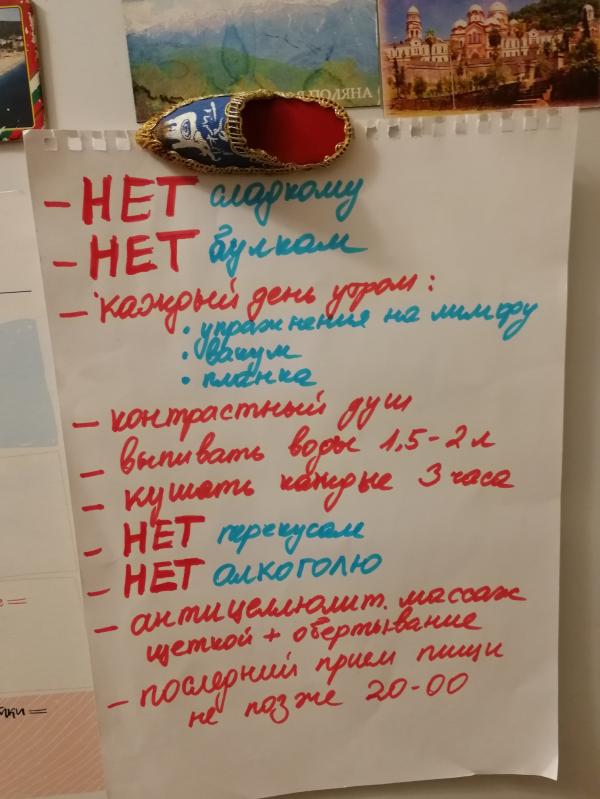 - НЕТ сладкому
- НЕТ булкам
- каждый день утром:
• упражнения на лимфу
• вакум
• планка
- контрастный душ
- выпивать воды 1,5-2 л
- кушать каждые 3 часа
- НЕТ перекусам
- НЕТ алкоголю
- антицеллюлит. массаж
щеткой + обертывание
- последний прием пищи
не позже 20-00